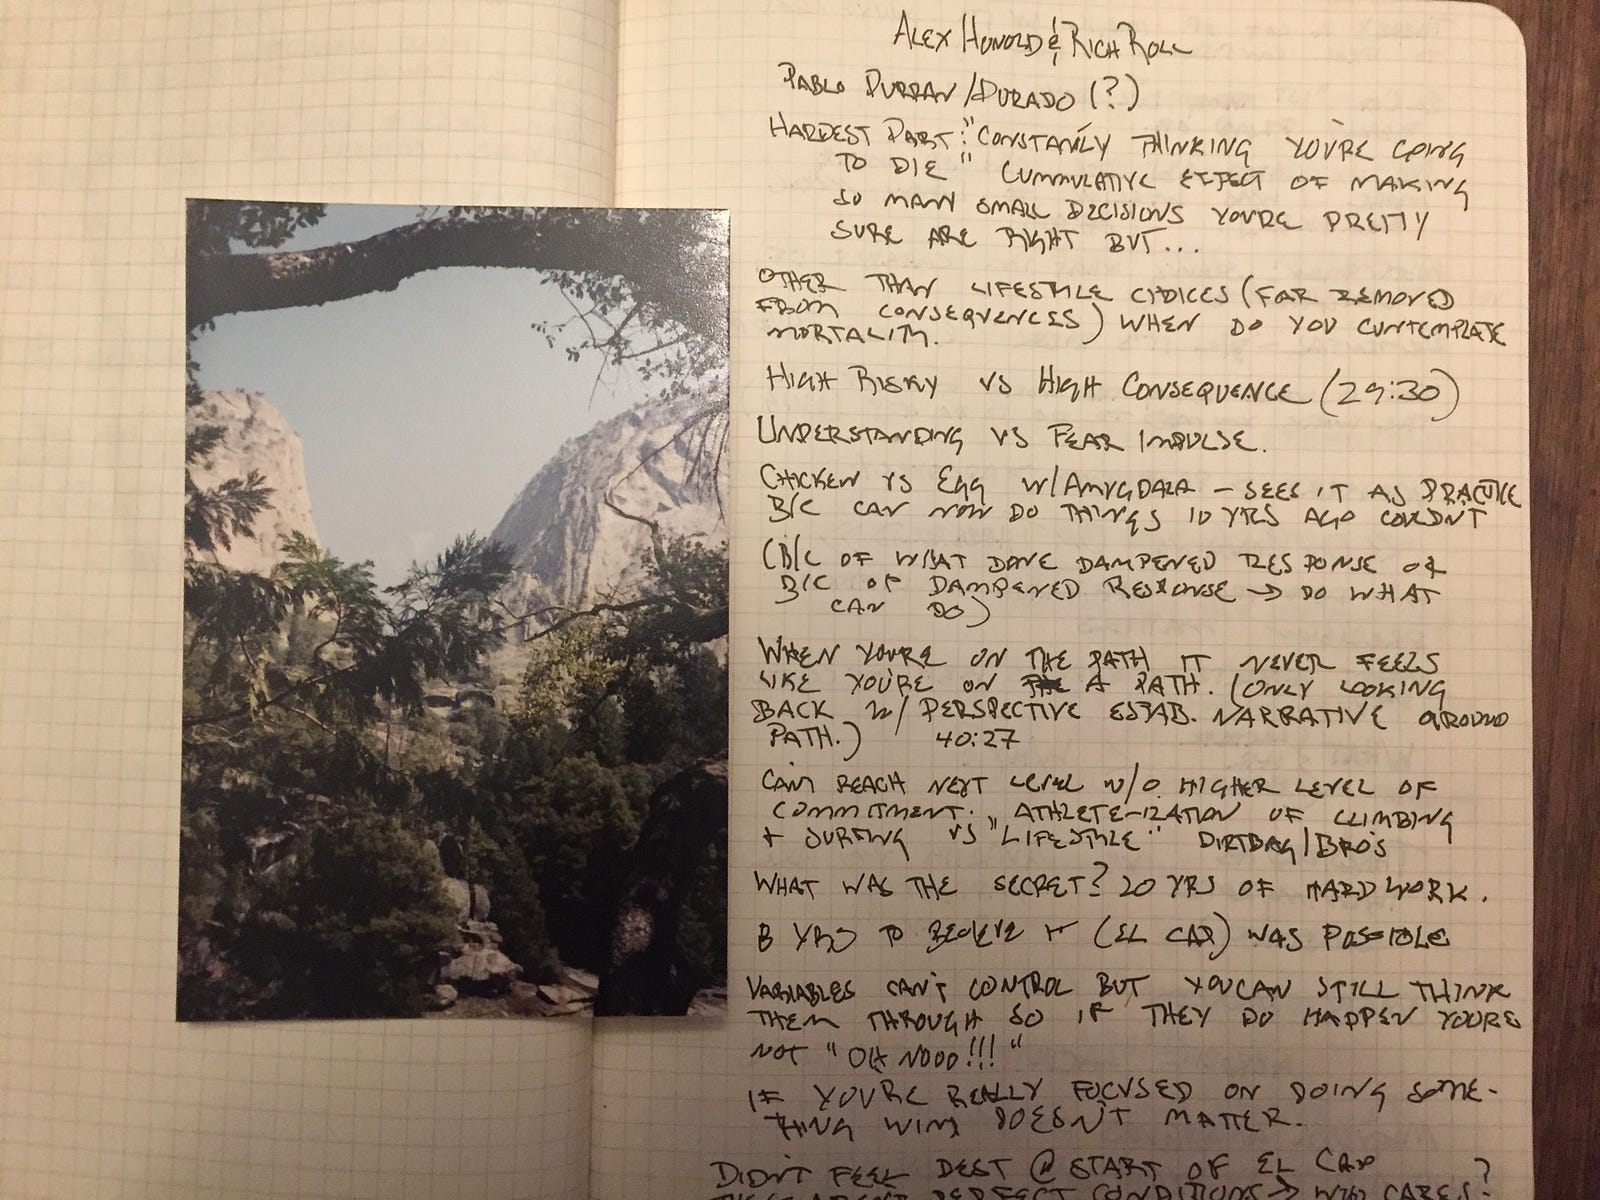 ALEX HONOLD & RICH ROLL
PABLO DURRAN/DURADO (?)
HARDEST PART: "CONSTANTLY THINKING YOU'RE GOING
TO DIE" CUMMULATIVE EFFECT OF MAKING
SO MANY SMALL DECISIONS YOU'RE PRETTY
SURE ARE RIGHT BUT...
OTHER THAN LIFESTYLE CHOICES (FAR REMOVED
FROM CONSEQUENCES) WHEN DO YOU CONTEMPLATE
MORTALITY.
HIGH RISKY VS HIGH CONSEQUENCE (29:30)
UNDERSTANDING VS FEAR IMPULSE.
CHICKEN VS EGG W/AMYGDALA - SEES IT AS PRACTICE
B/C CAN NOW DO THINGS 10 YRS AGO COULDN'T
(B/C OF WHAT DONE DAMPENED RESPONSE OR
B/C OF DAMPENED RESPONSE → DO WHAT
CAN DO)
WHEN YOU'RE ON THE PATH IT NEVER FEELS
LIKE YOU'RE ON A PATH. (ONLY LOOKING
BACK W/ PERSPECTIVE ESTAB. NARRATIVE AROUND
PATH.) 40:27
CAN'T REACH NEXT LEVEL W/O HIGHER LEVEL OF
COMMITMENT. ATHLETE-IZATION OF CLIMBING
+ SURFING VS "LIFESTYLE" DIRTBAG/BRO'S
WHAT WAS THE SECRET? 20 YRS OF HARD WORK.
8 YRS TO BELIEVE IT (EL CAP) WAS POSSIBLE
VARIABLES CAN'T CONTROL BUT YOU CAN STILL THINK
THEM THROUGH SO IF THEY DO HAPPEN YOU'RE
NOT "OH NOOO!!!"
IF YOU'RE REALLY FOCUSED ON DOING SOME-
THING WINS DOESN'T MATTER.
DIDN'T FEEL BEST @ START OF EL CAP ?
PERFECT CONDITIONS → WHO CARES?